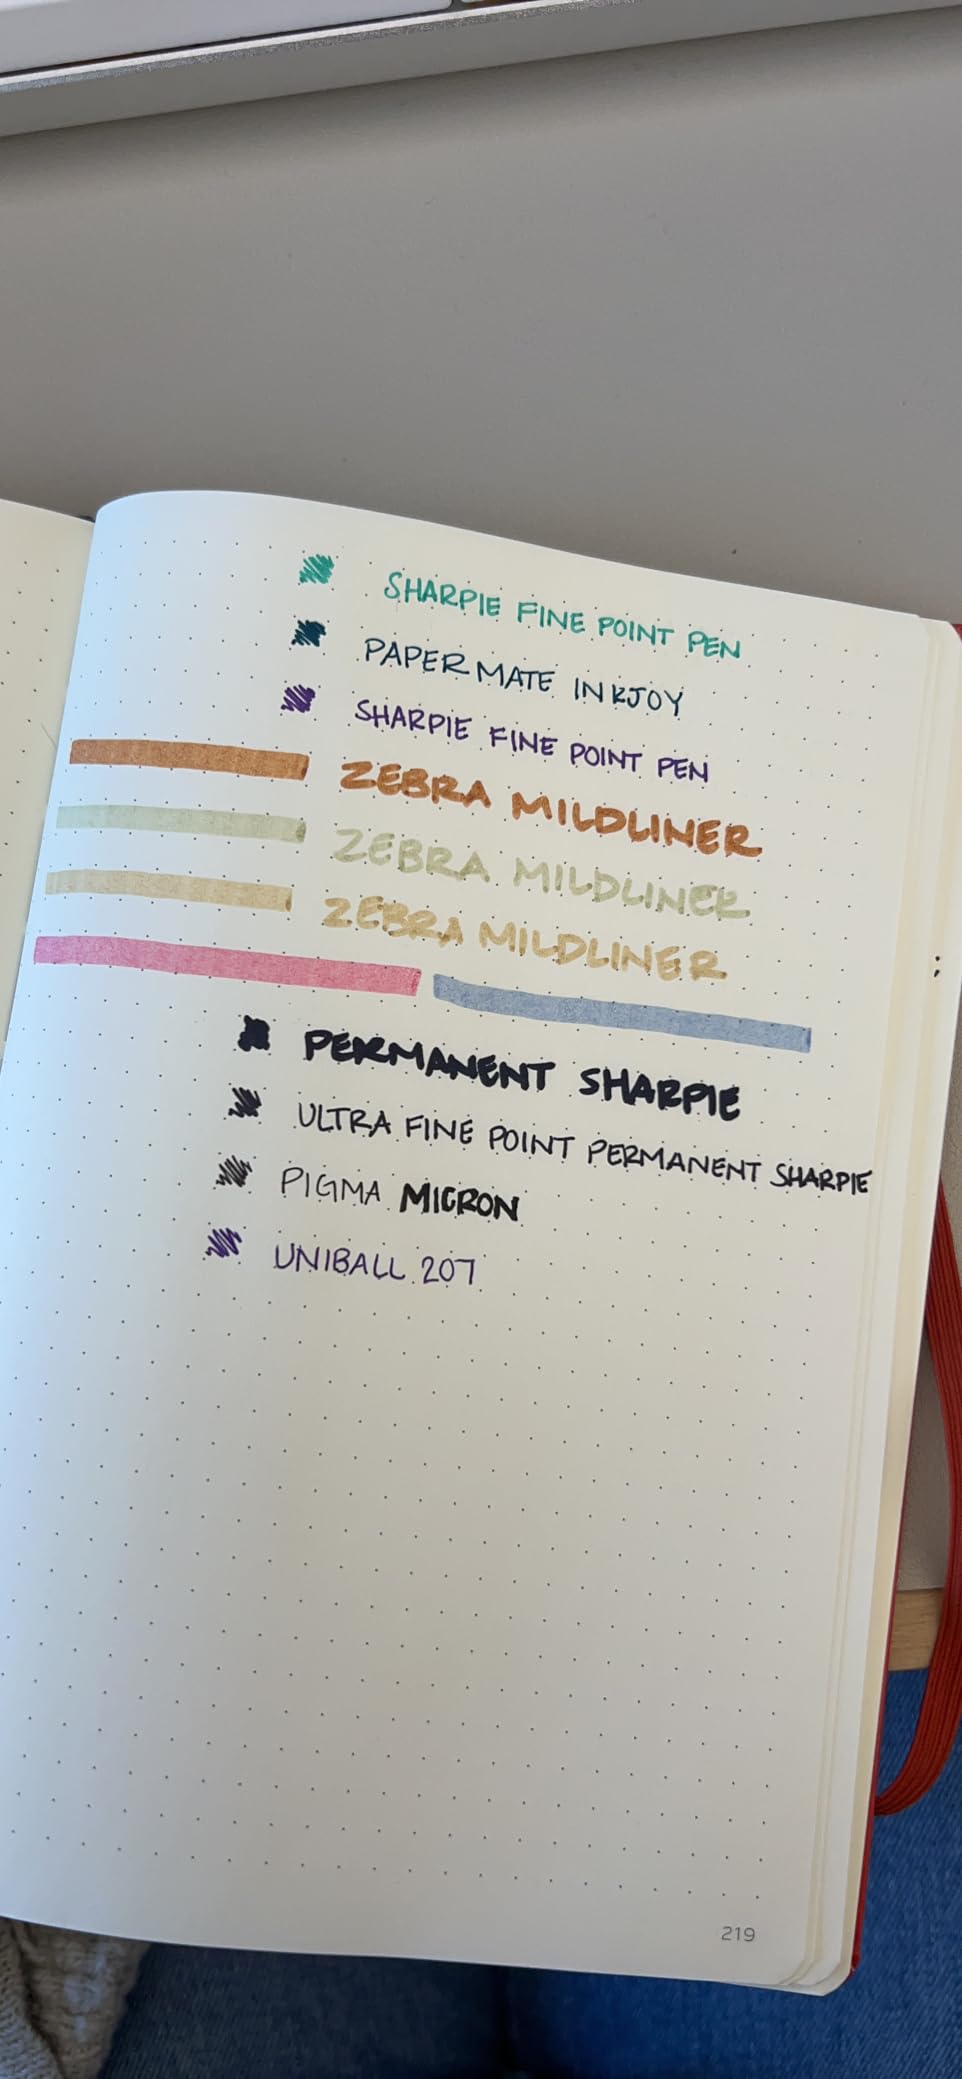 SHARPIE FINE POINT PEN
PAPERMATE INKJOY
SHARPIE FINE POINT PEN
ZEBRA MILDLINER
ZEBRA MILDLINER
ZEBRA MILDLINER
PERMANENT SHARPIE
ULTRA FINE POINT PERMANENT SHARPIE
PIGMA MICRON
UNIBALL 207
219